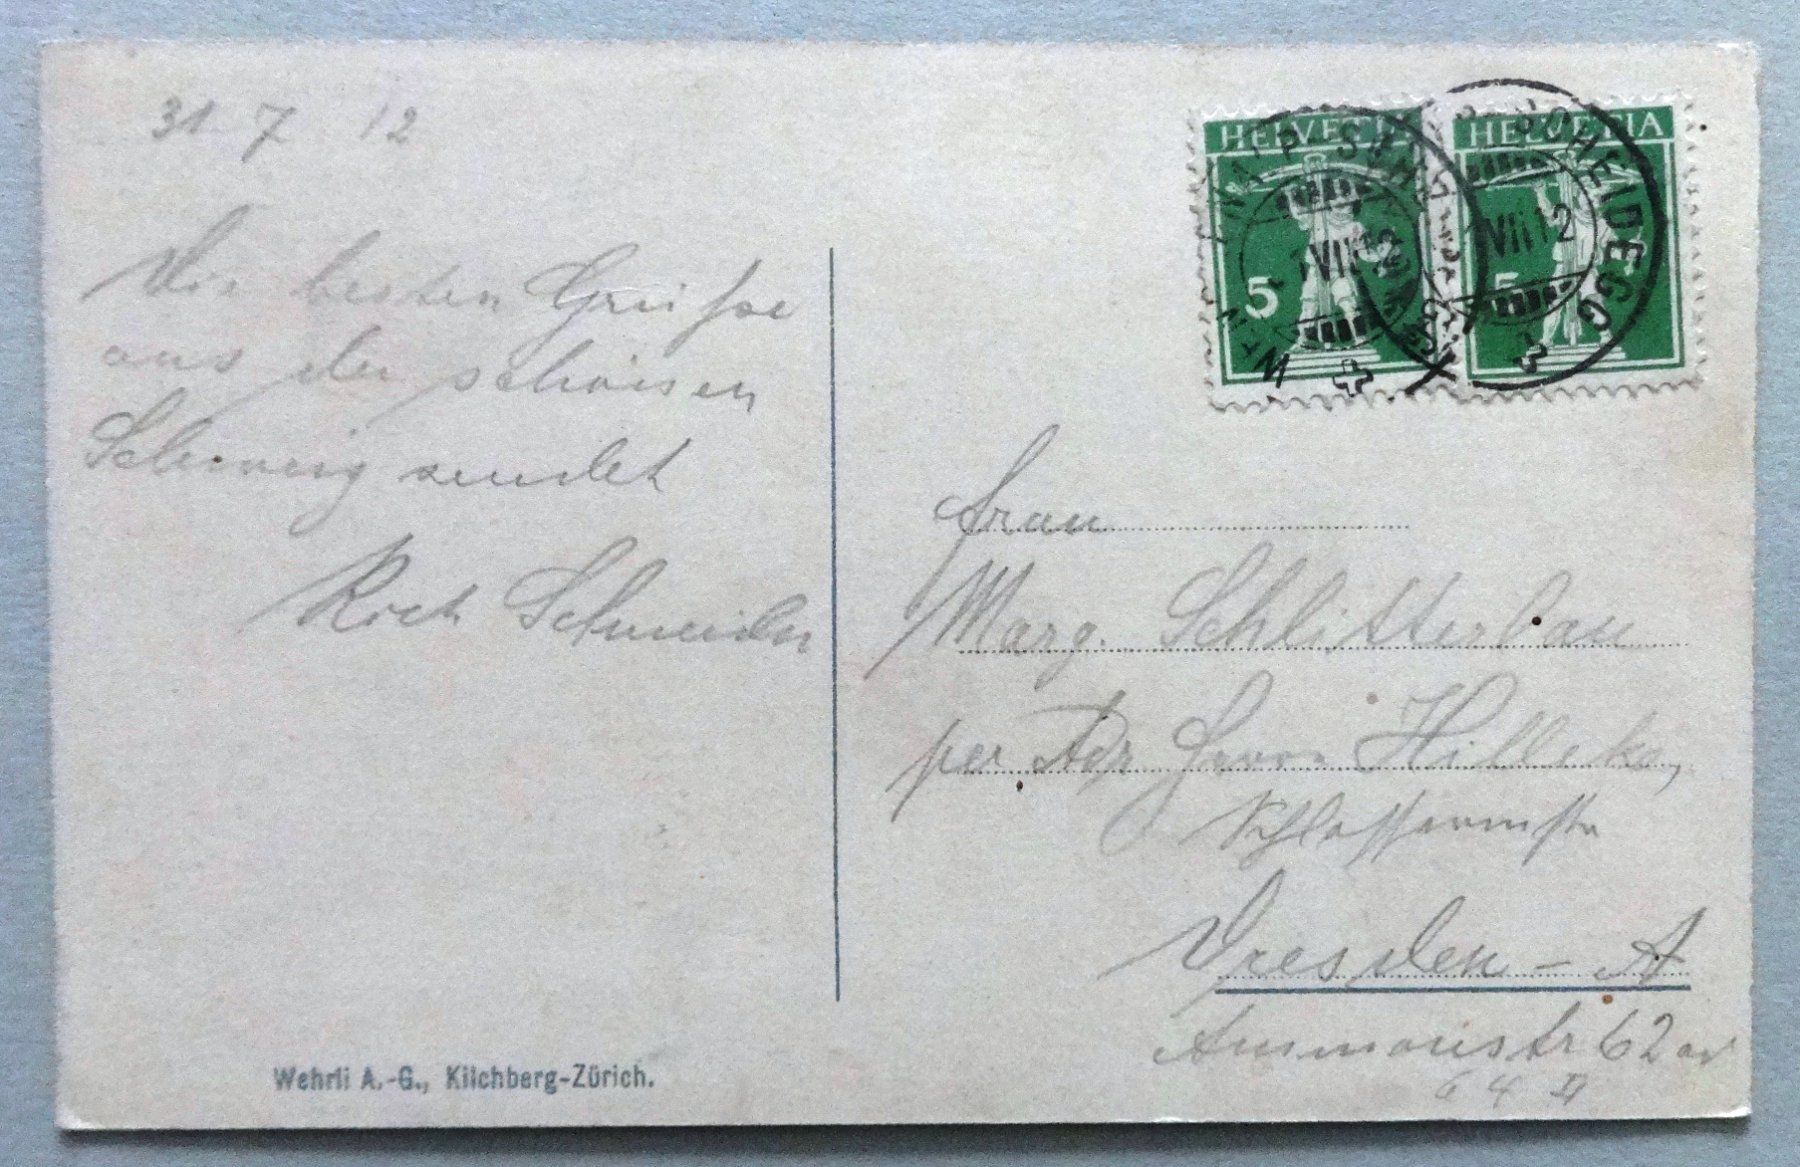 31 7 12
Die besten Grüsse
aus der schönen
Schweiz sendet
Schneider
HELVETIA
HELVETIA
5
5
SCHEIDEGG
VII 12
VII 12
Frau
Marg. Schlitterlau
per Adr Hilleke,
Dresden - A
Ammonstr 62 od
64 II
Wehrli A.-G., Kilchberg-Zürich.